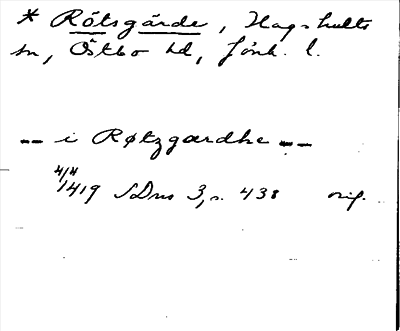 * Rötsgärde, Hagshults
sn, Östbo hd, Jönk. l.
-- i Røtzgærdhe --
4/4
1419 SDns 3, s. 438 orig.